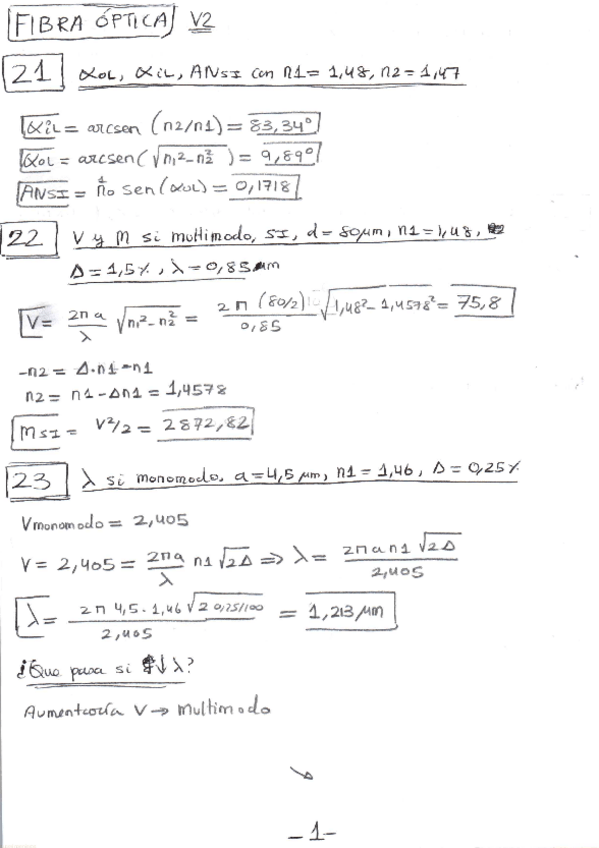 FIBRA ÓPTICA V2
21 αOL, αiL, ANSI con n1 = 1,48, n2 = 1,47
αiL = arcsen (n2/n1) = 83,34º
αOL = arcsen(√n1²-n2²) = 9,89º
ANSI = n0 sen(αOL) = 0,1718
22 V y M si multimodo, SI, d = 80µm, n1 = 1,48,
Δ = 1,5%, λ = 0,85µm
V = 2πa/λ √n1²-n2² = 2π (80/2)/0,85 √1,48²-1,4578² = 75,8
-n2 = Δ·n1-n1
n2 = n1-Δn1 = 1,4578
MSI = V²/2 = 2872,82
23 λ si monomodo, a = 4,5 µm, n1 = 1,46, Δ = 0,25%
Vmonomodo = 2,405
V = 2,405 = 2πa/λ n1 √2Δ ⇒ λ = 2πan1√2Δ/2,405
λ = 2π 4,5·1,46 √2 0,25/100/2,405 = 1,213µm
¿Que pasa si ↓λ?
Aumentaría V → multimodo
→
-1-